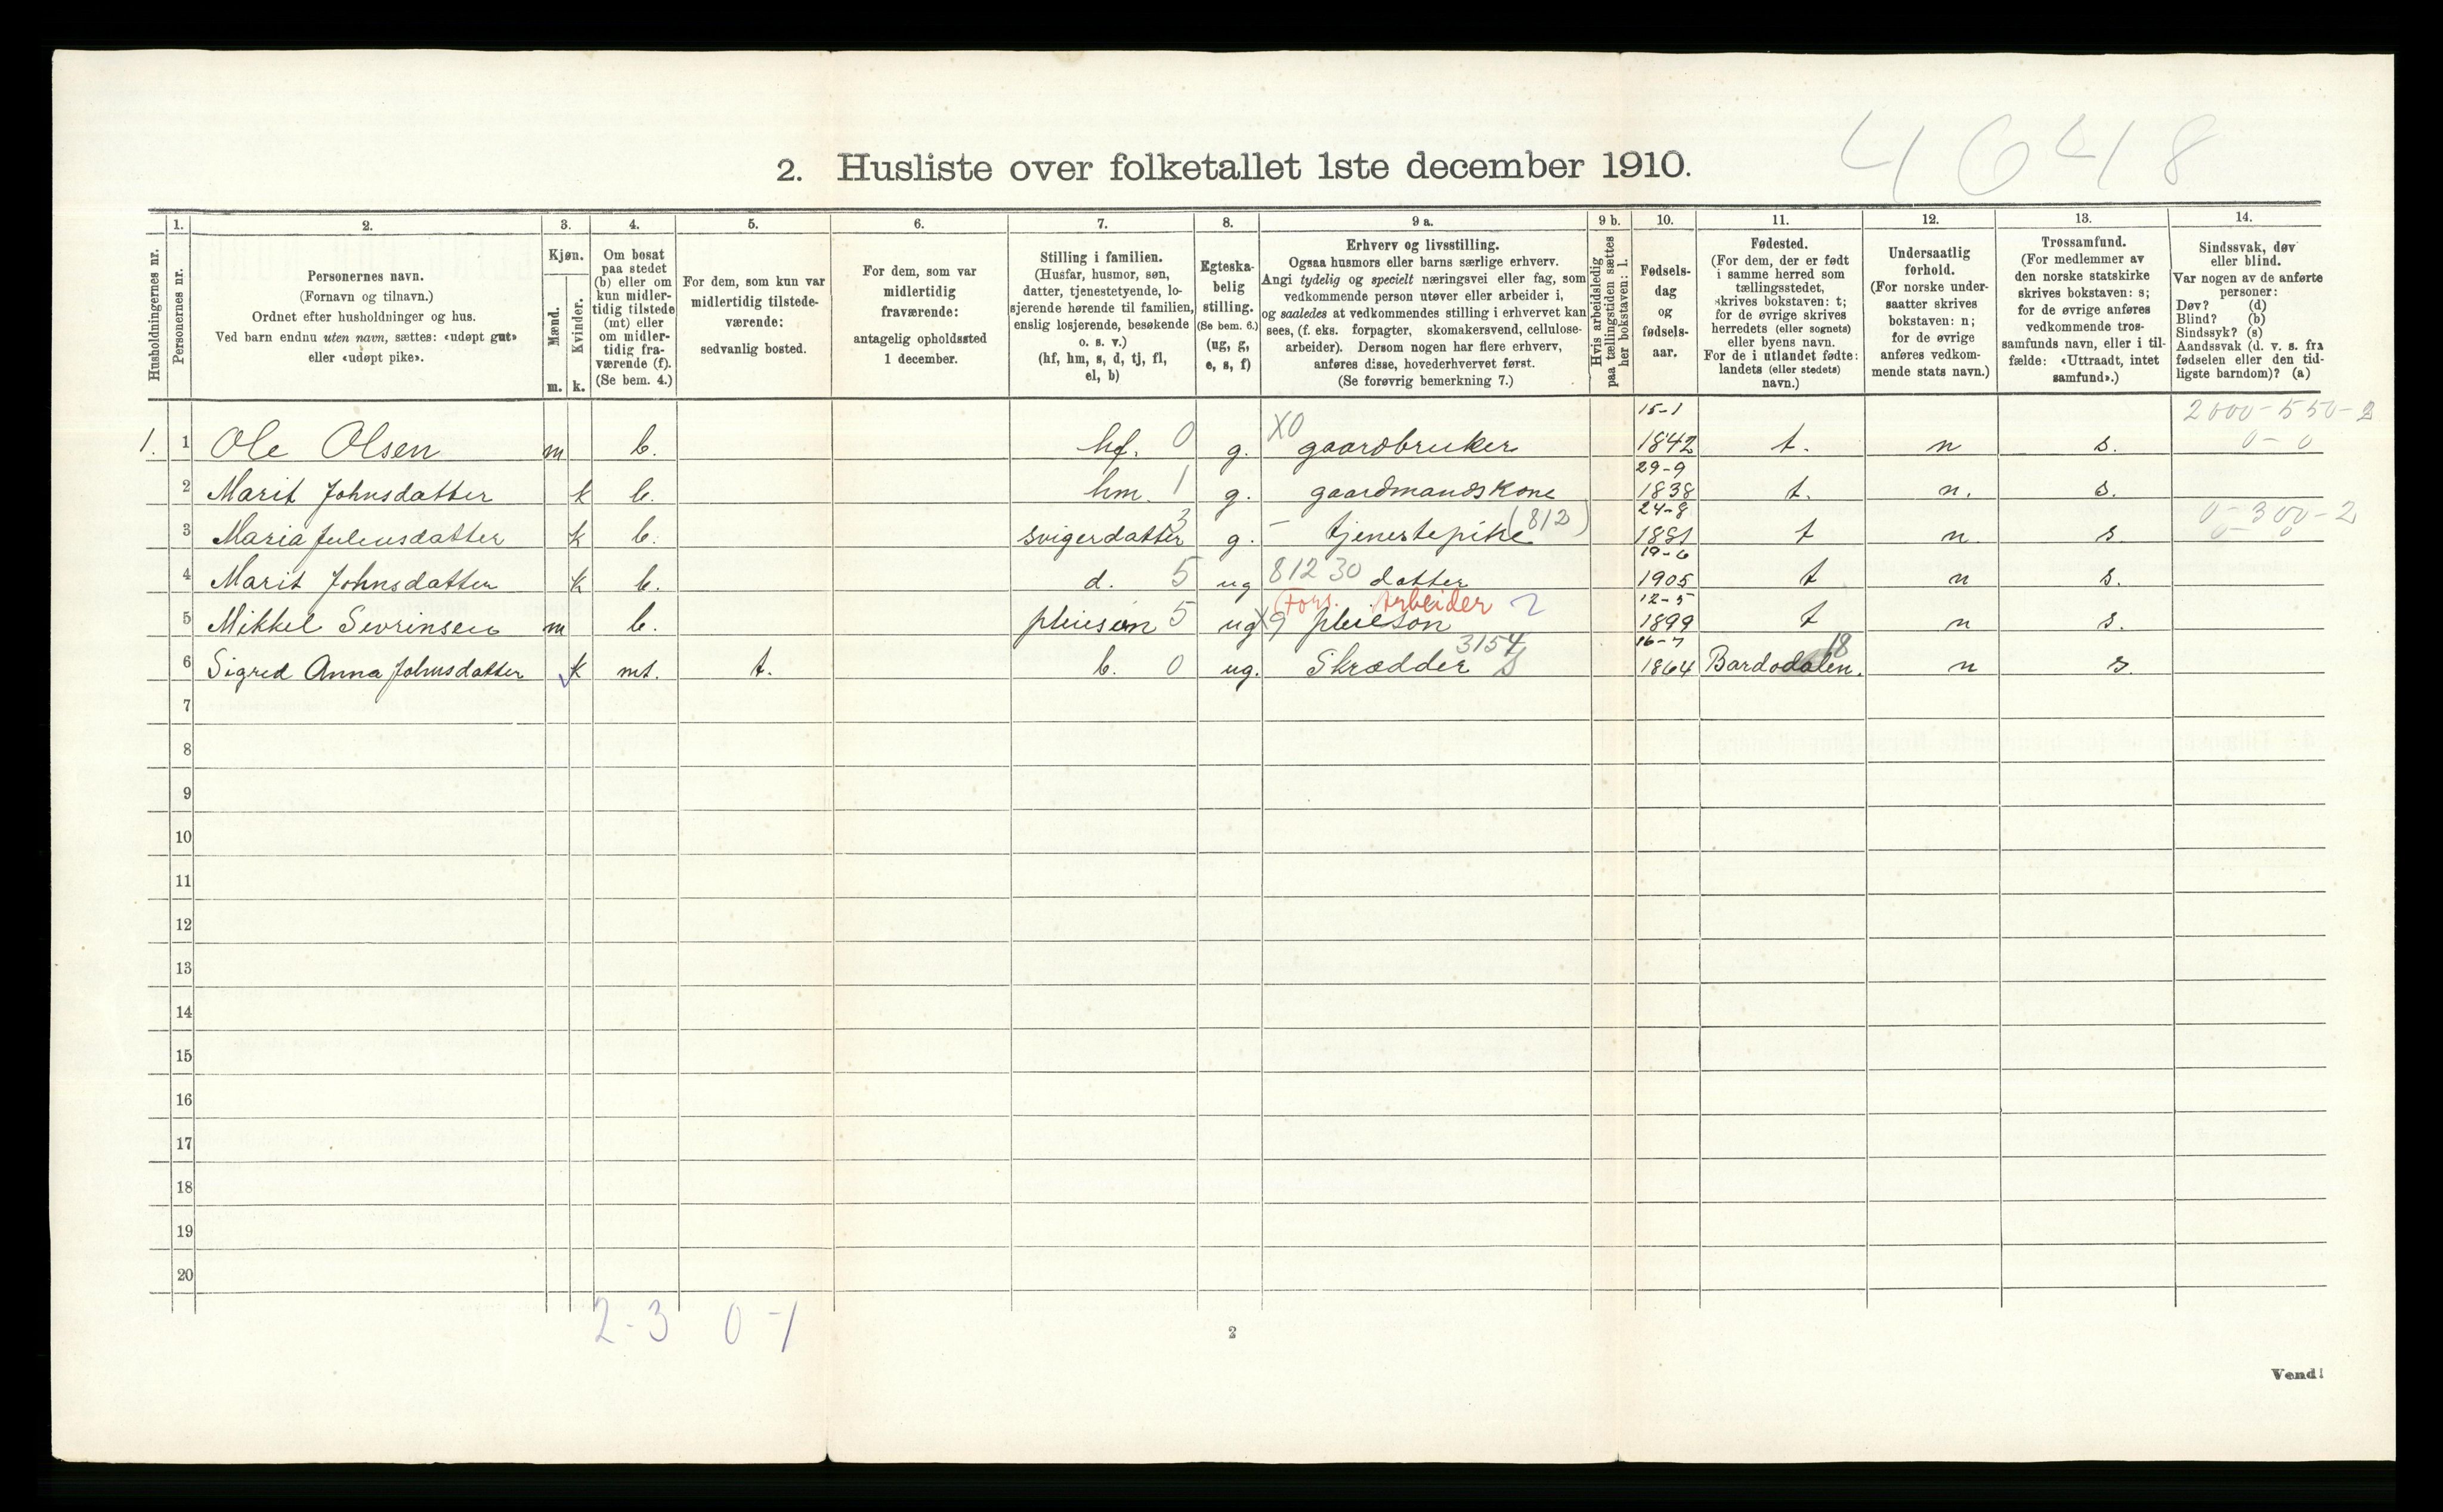 4648
2. Husliste over folketallet 1ste december 1910.
Husholdningernes nr.
1.
Personernes nr.
2.
Personernes navn.
(Fornavn og tilnavn.)
Ordnet efter husholdninger og hus.
Ved barn endnu uten navn, sættes: «udøpt gut»
eller «udøpt pike».
3.
Kjøn.
Mænd.
Kvinder.
m. k.
4.
Om bosat
paa stedet
(b) eller om
kun midler-
tidig tilstede
(mt) eller
om midler-
tidig fra-
værende (f).
(Se bem. 4.)
5.
For dem, som kun var
midlertidig tilstede-
værende:
sedvanlig bosted.
6.
For dem, som var
midlertidig
fraværende:
antagelig opholdssted
1 december.
7.
Stilling i familien.
(Husfar, husmor, søn,
datter, tjenestetyende, lo-
sjerende hørende til familien,
enslig losjerende, besøkende
o. s. v.)
(hf, hm, s, d, tj, fl,
el, b)
8.
Egteska-
belig
stilling.
(Se bem. 6.)
(ug, g,
e, s, f)
9 a.
Erhverv og livsstilling.
Ogsaa husmors eller barns særlige erhverv.
Angi tydelig og specielt næringsvei eller fag, som
vedkommende person utøver eller arbeider i,
og saaledes at vedkommendes stilling i erhvervet kan
sees, (f. eks. forpagter, skomakersvend, cellulose-
arbeider). Dersom nogen har flere erhverv,
anføres disse, hovederhvervet først.
(Se forøvrig bemerkning 7.)
9 b.
Hvis arbeidsledig
paa tællingstiden sættes
her bokstaven: l.
10.
Fødsels-
dag
og
fødsels-
aar.
11.
Fødested.
(For dem, der er født
i samme herred som
tællingsstedet,
skrives bokstaven: t;
for de øvrige skrives
herredets (eller sognets)
eller byens navn.
For de i utlandet fødte:
landets (eller stedets)
navn.)
12.
Undersaatlig
forhold.
(For norske under-
saatter skrives
bokstaven: n;
for de øvrige
anføres vedkom-
mende stats navn.)
13.
Trossamfund.
(For medlemmer av
den norske statskirke
skrives bokstaven: s;
for de øvrige anføres
vedkommende tros-
samfunds navn, eller i til-
fælde: «Uttraadt, intet
samfund».)
14.
Sindssvak, døv
eller blind.
Var nogen av de anførte
personer:
Døv? (d)
Blind? (b)
Sindssyk? (s)
Aandssvak (d. v. s. fra
fødselen eller den tid-
ligste barndom)? (a)
15-1 2000-550-3
1. 1 Ole Olsen m b. hf. 0 g. X0 gaardbruker 1842 t. n s. 0-0
29-9
2 Marit Johnsdatter k b. hm. 1 g. gaardmandskone 1838 t. n. s.
24-8 0-300-2
3 Maria Juliusdatter k b. svigerdatter 3 g. - tjenestepike (812) 1881 t n. s. 0- 0
19-6
4 Marit Johnsdatter k b. d. 5 ug 81230 datter 1905 t n s.
Fors. Arbeider 2 12-5
5 Mikkel Sevrinsen m b. pleiesøn 5 ug X9 pleiesøn 1899 t n s.
3154 16-7 18
6 Sigred Anna Johnsdatter k mt. t. b. 0 ug. Skrædder S 1864 Bardodalen. n s.
7
8
9
10
11
12
13
14
15
16
17
18
19
20
2-3 0-1
2
Vend!